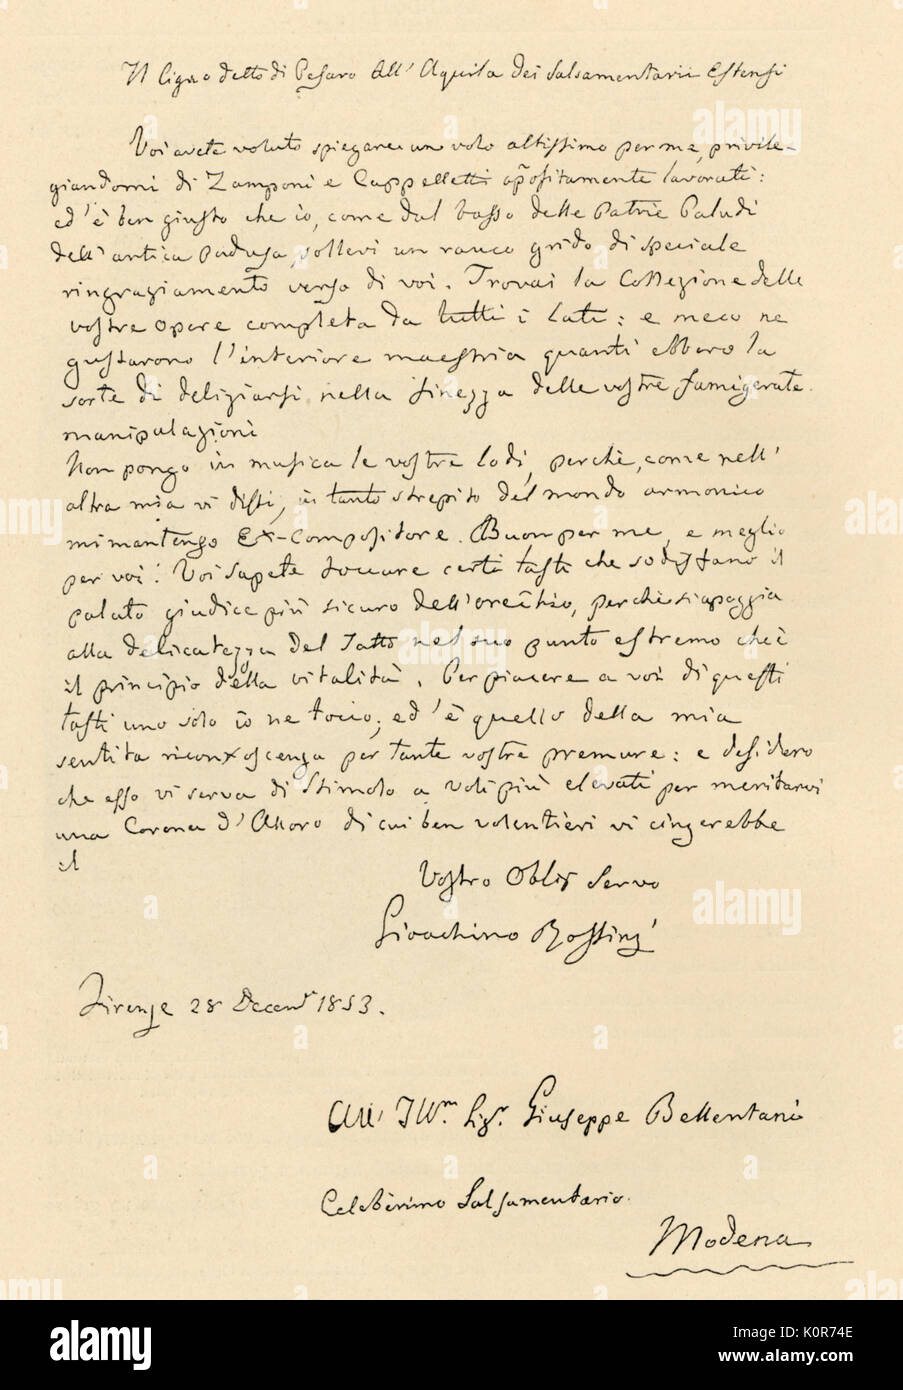 Il Cigno detto di Pesaro All' Aquila dei Salsamentarii Estensi
Voi avete voluto spiegare un volo altissimo per me, privile-
giandomi di Zamponi e Cappelletti appositamente lavorati:
ed'è ben giusto che io, come dal basso delle Patrie Paludi
dell'antica Padusa, sollevi un rauco grido di speciale
ringraziamento verso di voi. Trovai la Collezione delle
vostre opere completa da tutti i lati: e meco ne
gustarono l'interiore maestria quanti ebbero la
sorte di deliziarsi nella finezza delle vostre famigerate
manipolazioni
Non pongo in musica le vostre lodi, perchè, come nell'
altra mia vi dissi, in tanto strepito del mondo armonico
mi mantengo Ex-Compositore. Buon per me, e meglio
per voi! Voi sapete toccare certi tasti che sodisfano il
palato giudice più sicuro dell'orecchio, perchè si appoggia
alla delicatezza del Tatto nel suo punto estremo che è
il principio della vitalità. Per piacere a voi di questi
tasti uno solo io ne tocco; ed'è quello della mia
sentita riconoscenza per tante vostre premure: e desidero
che esso vi serva di Stimolo a voli più elevati per meritarvi
una Corona d'Alloro di cui ben volentieri vi cingerebbe
il
Vostro Oblig Servo
Gioachino Rossini
Firenze 28 Decem 1853.
All' Illm. Sigr. Giuseppe Bellentani
Celeberimo Salsamentario.
Modena
alamy
a
alamy stock photo
K0R74E
www.alamy.com